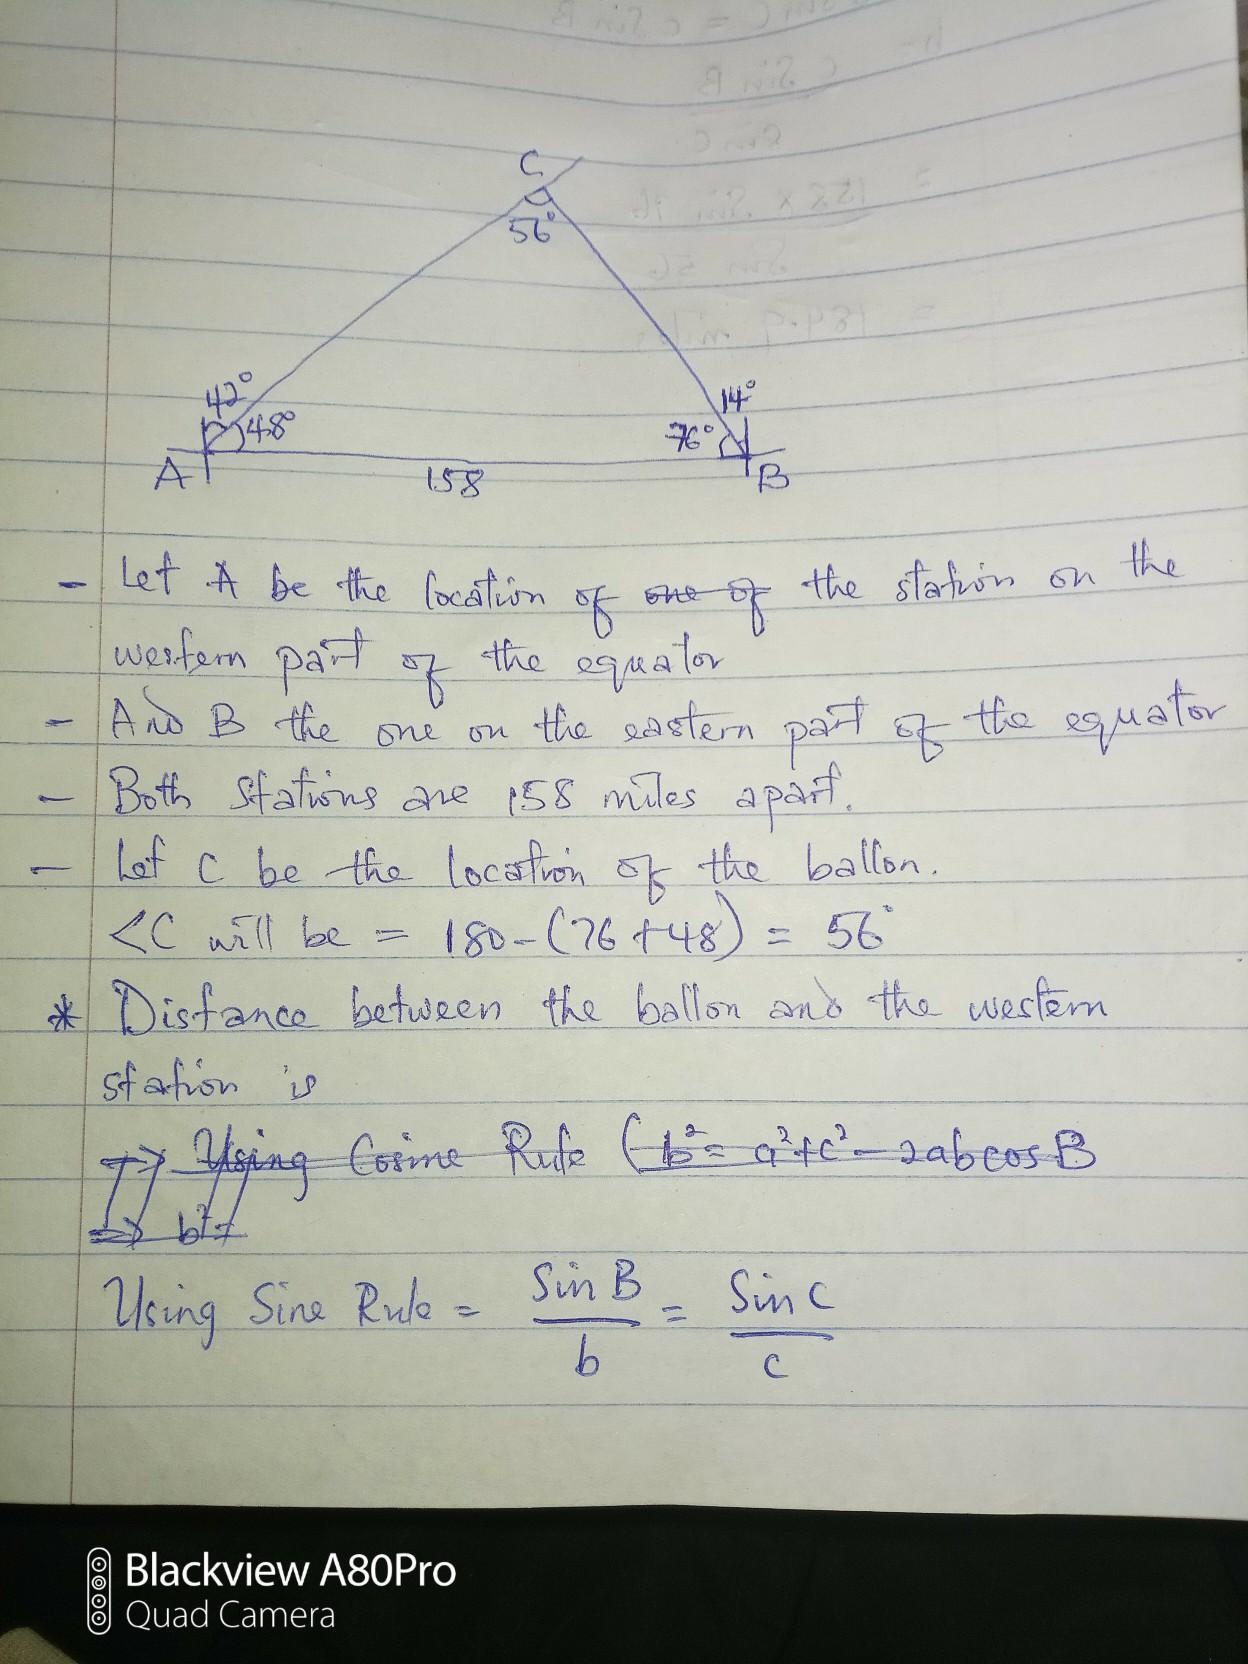 C
56°
42°
48°
14°
76°
A
158
B
- Let A be the location of one of the station on the
western part of the equator
- And B the one on the eastern part of the equator
- Both stations are 158 miles apart.
- Let C be the location of the ballon.
<C will be = 180-(76+48) = 56°
* Distance between the ballon and the western
station is
=> Using Cosine Rule (b²= a²+c²- 2abcosB
=> b²=
Using Sine Rule = Sin B / b = Sin C / c
Blackview A80Pro
Quad Camera